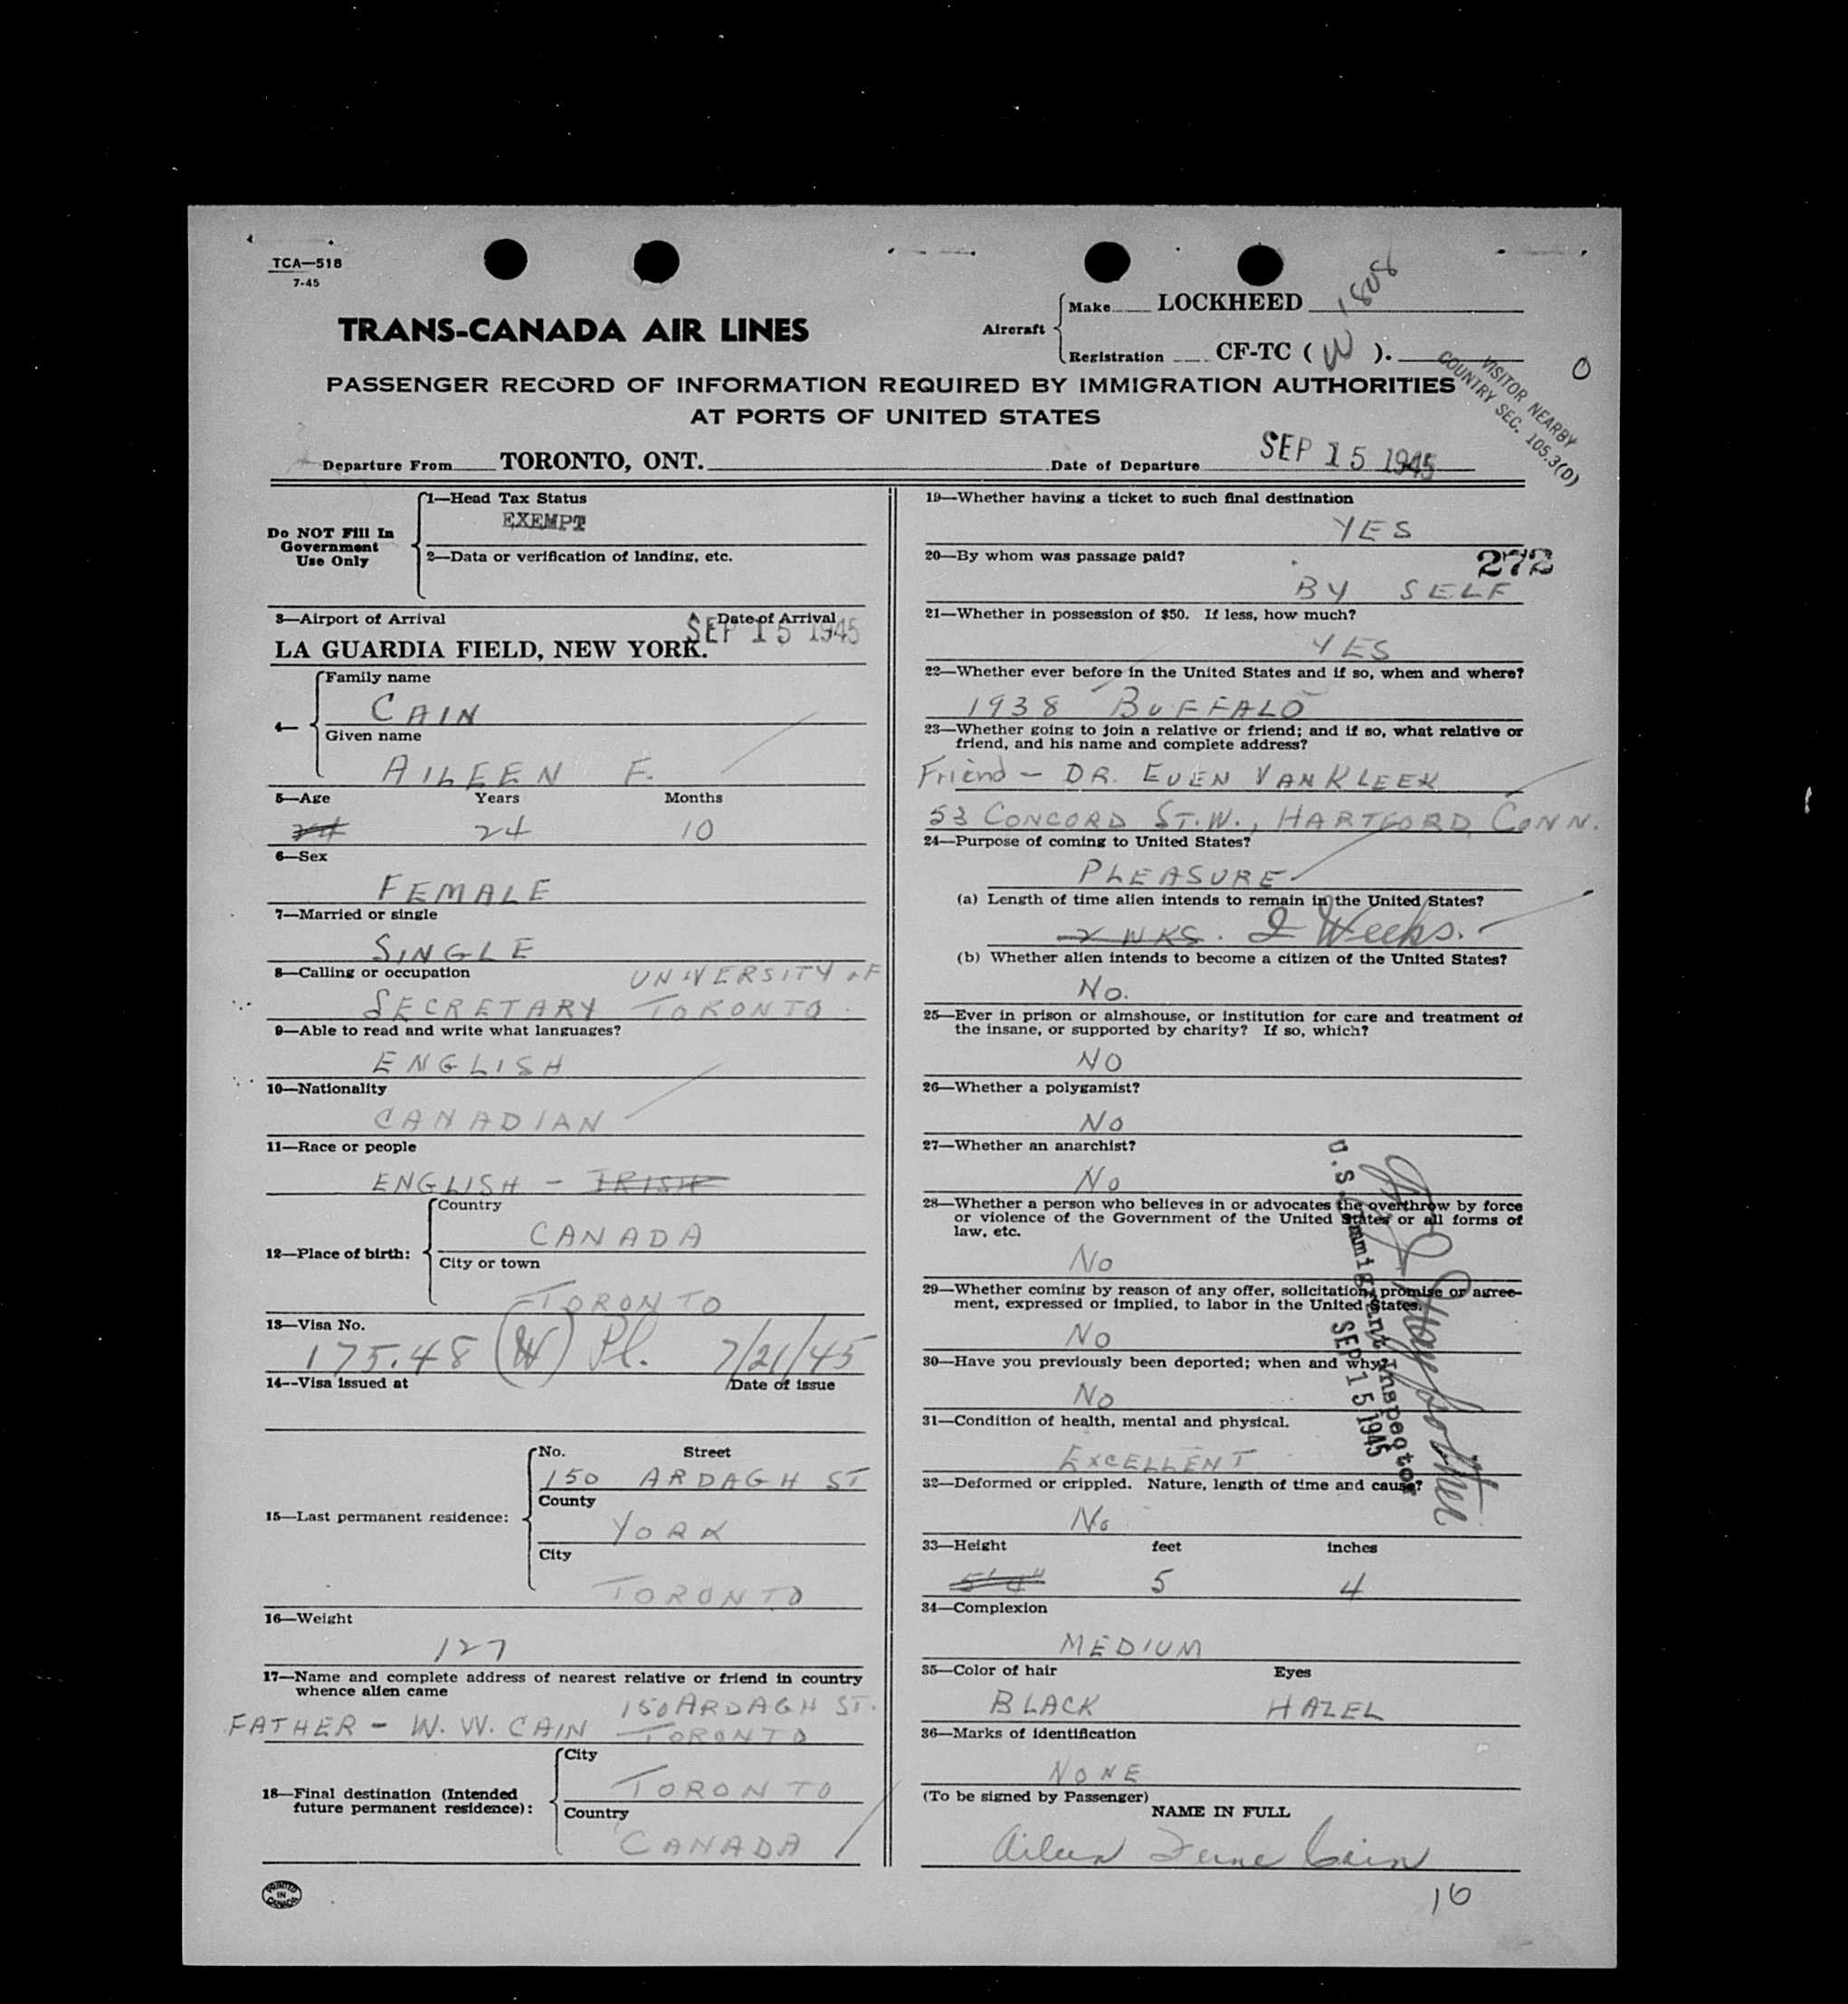 TCA—518
7-45
TRANS-CANADA AIR LINES
Aircraft
Make LOCKHEED 1808
Registration CF-TC ( W ).
PASSENGER RECORD OF INFORMATION REQUIRED BY IMMIGRATION AUTHORITIES
AT PORTS OF UNITED STATES
VISITOR NEARBY
COUNTRY SEC. 105.3(D)
Departure From TORONTO, ONT. Date of Departure SEP 15 1945
Do NOT Fill In
Government
Use Only
1—Head Tax Status
EXEMPT
2—Data or verification of landing, etc.
3—Airport of Arrival Date of Arrival
LA GUARDIA FIELD, NEW YORK. SEP 15 1945
4—
Family name
CAIN
Given name
AILEEN F.
5—Age Years Months
24 24 10
6—Sex
FEMALE
7—Married or single
SINGLE
8—Calling or occupation UNIVERSITY OF
SECRETARY TORONTO
9—Able to read and write what languages?
ENGLISH
10—Nationality
CANADIAN
11—Race or people
ENGLISH - IRISH
12—Place of birth:
Country
CANADA
City or town
TORONTO
13—Visa No.
175.48 (W) Pl. 7/21/45
14--Visa issued at Date of issue
15—Last permanent residence:
No. Street
150 ARDAGH ST
County
YORK
City
TORONTO
16—Weight
127
17—Name and complete address of nearest relative or friend in country
whence alien came 150 ARDAGH ST.
FATHER - W. W. CAIN TORONTO
18—Final destination (Intended
future permanent residence):
City
TORONTO
Country
CANADA
PRINTED
IN
CANADA
19—Whether having a ticket to such final destination
YES
20—By whom was passage paid? 272
BY SELF
21—Whether in possession of $50. If less, how much?
YES
22—Whether ever before in the United States and if so, when and where?
1938 BUFFALO
23—Whether going to join a relative or friend; and if so, what relative or
friend, and his name and complete address?
Friend - DR. EUEN VAN KLEEK
53 CONCORD ST. W., HARTFORD CONN.
24—Purpose of coming to United States?
PLEASURE
(a) Length of time alien intends to remain in the United States?
2 WKS. 2 Weeks.
(b) Whether alien intends to become a citizen of the United States?
No.
25—Ever in prison or almshouse, or institution for care and treatment of
the insane, or supported by charity? If so, which?
NO
26—Whether a polygamist?
No
27—Whether an anarchist?
No
28—Whether a person who believes in or advocates the overthrow by force
or violence of the Government of the United States or all forms of
law, etc.
No
29—Whether coming by reason of any offer, solicitation, promise or agree-
ment, expressed or implied, to labor in the United States.
No
30—Have you previously been deported; when and why?
No
31—Condition of health, mental and physical.
EXCELLENT
32—Deformed or crippled. Nature, length of time and cause?
No
U.S. Immigrant Inspector
SEP 15 1945
33—Height feet inches
5'4" 5 4
34—Complexion
MEDIUM
35—Color of hair Eyes
BLACK HAZEL
36—Marks of identification
NONE
(To be signed by Passenger)
NAME IN FULL
Aileen Ferne Cain
16